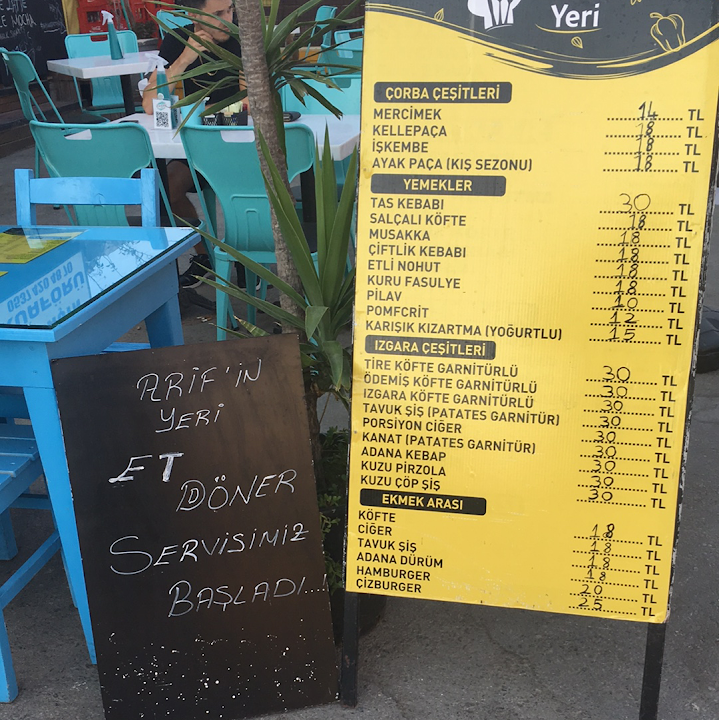 LE MOCHA
Yeri
ÇORBA ÇEŞİTLERİ
MERCİMEK 14 TL
KELLEPAÇA 18 TL
İŞKEMBE 18 TL
AYAK PAÇA (KIŞ SEZONU) 18 TL
YEMEKLER
TAS KEBABI 30 TL
SALÇALI KÖFTE 18 TL
MUSAKKA 18 TL
ÇİFTLİK KEBABI 18 TL
ETLİ NOHUT 18 TL
KURU FASULYE 18 TL
PİLAV 10 TL
POMFCRİT 12 TL
KARIŞIK KIZARTMA (YOĞURTLU) 15 TL
IZGARA ÇEŞİTLERİ
TİRE KÖFTE GARNİTÜRLÜ 30 TL
ÖDEMİŞ KÖFTE GARNİTÜRLÜ 30 TL
IZGARA KÖFTE GARNİTÜRLÜ 30 TL
TAVUK ŞİŞ (PATATES GARNİTÜR) 30 TL
PORSİYON CİĞER 30 TL
KANAT (PATATES GARNİTÜR) 30 TL
ADANA KEBAP 30 TL
KUZU PİRZOLA 30 TL
KUZU ÇÖP ŞİŞ 30 TL
EKMEK ARASI
KÖFTE 18 TL
CİĞER 18 TL
TAVUK ŞİŞ 18 TL
ADANA DÜRÜM 18 TL
HAMBURGER 20 TL
ÇİZBURGER 25 TL
0537 420 48 70
KUAFÖRÜ
ARİF'İN
YERİ
ET
DÖNER
SERVİSİMİZ
BAŞLADI...!